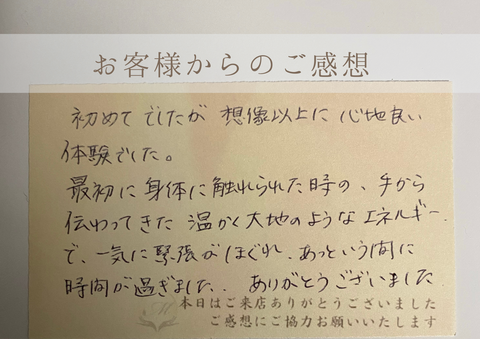 お客様からのご感想
初めてでしたが 想像以上に 心地良い
体験でした。
最初に身体に触れられた時の、手から
伝わってきた 温かく大地のようなエネルギー
で、一気に緊張がほぐれ、あっという間に
時間が過ぎました。 ありがとうございました
本日はご来店ありがとうございました
ご感想にご協力お願いいたします